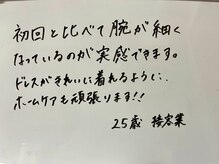 初回と比べて腕が細く
なっているのが実感できます。
ドレスがきれいに着れるように、
ホームケアも頑張ります!!
25歳 接客業